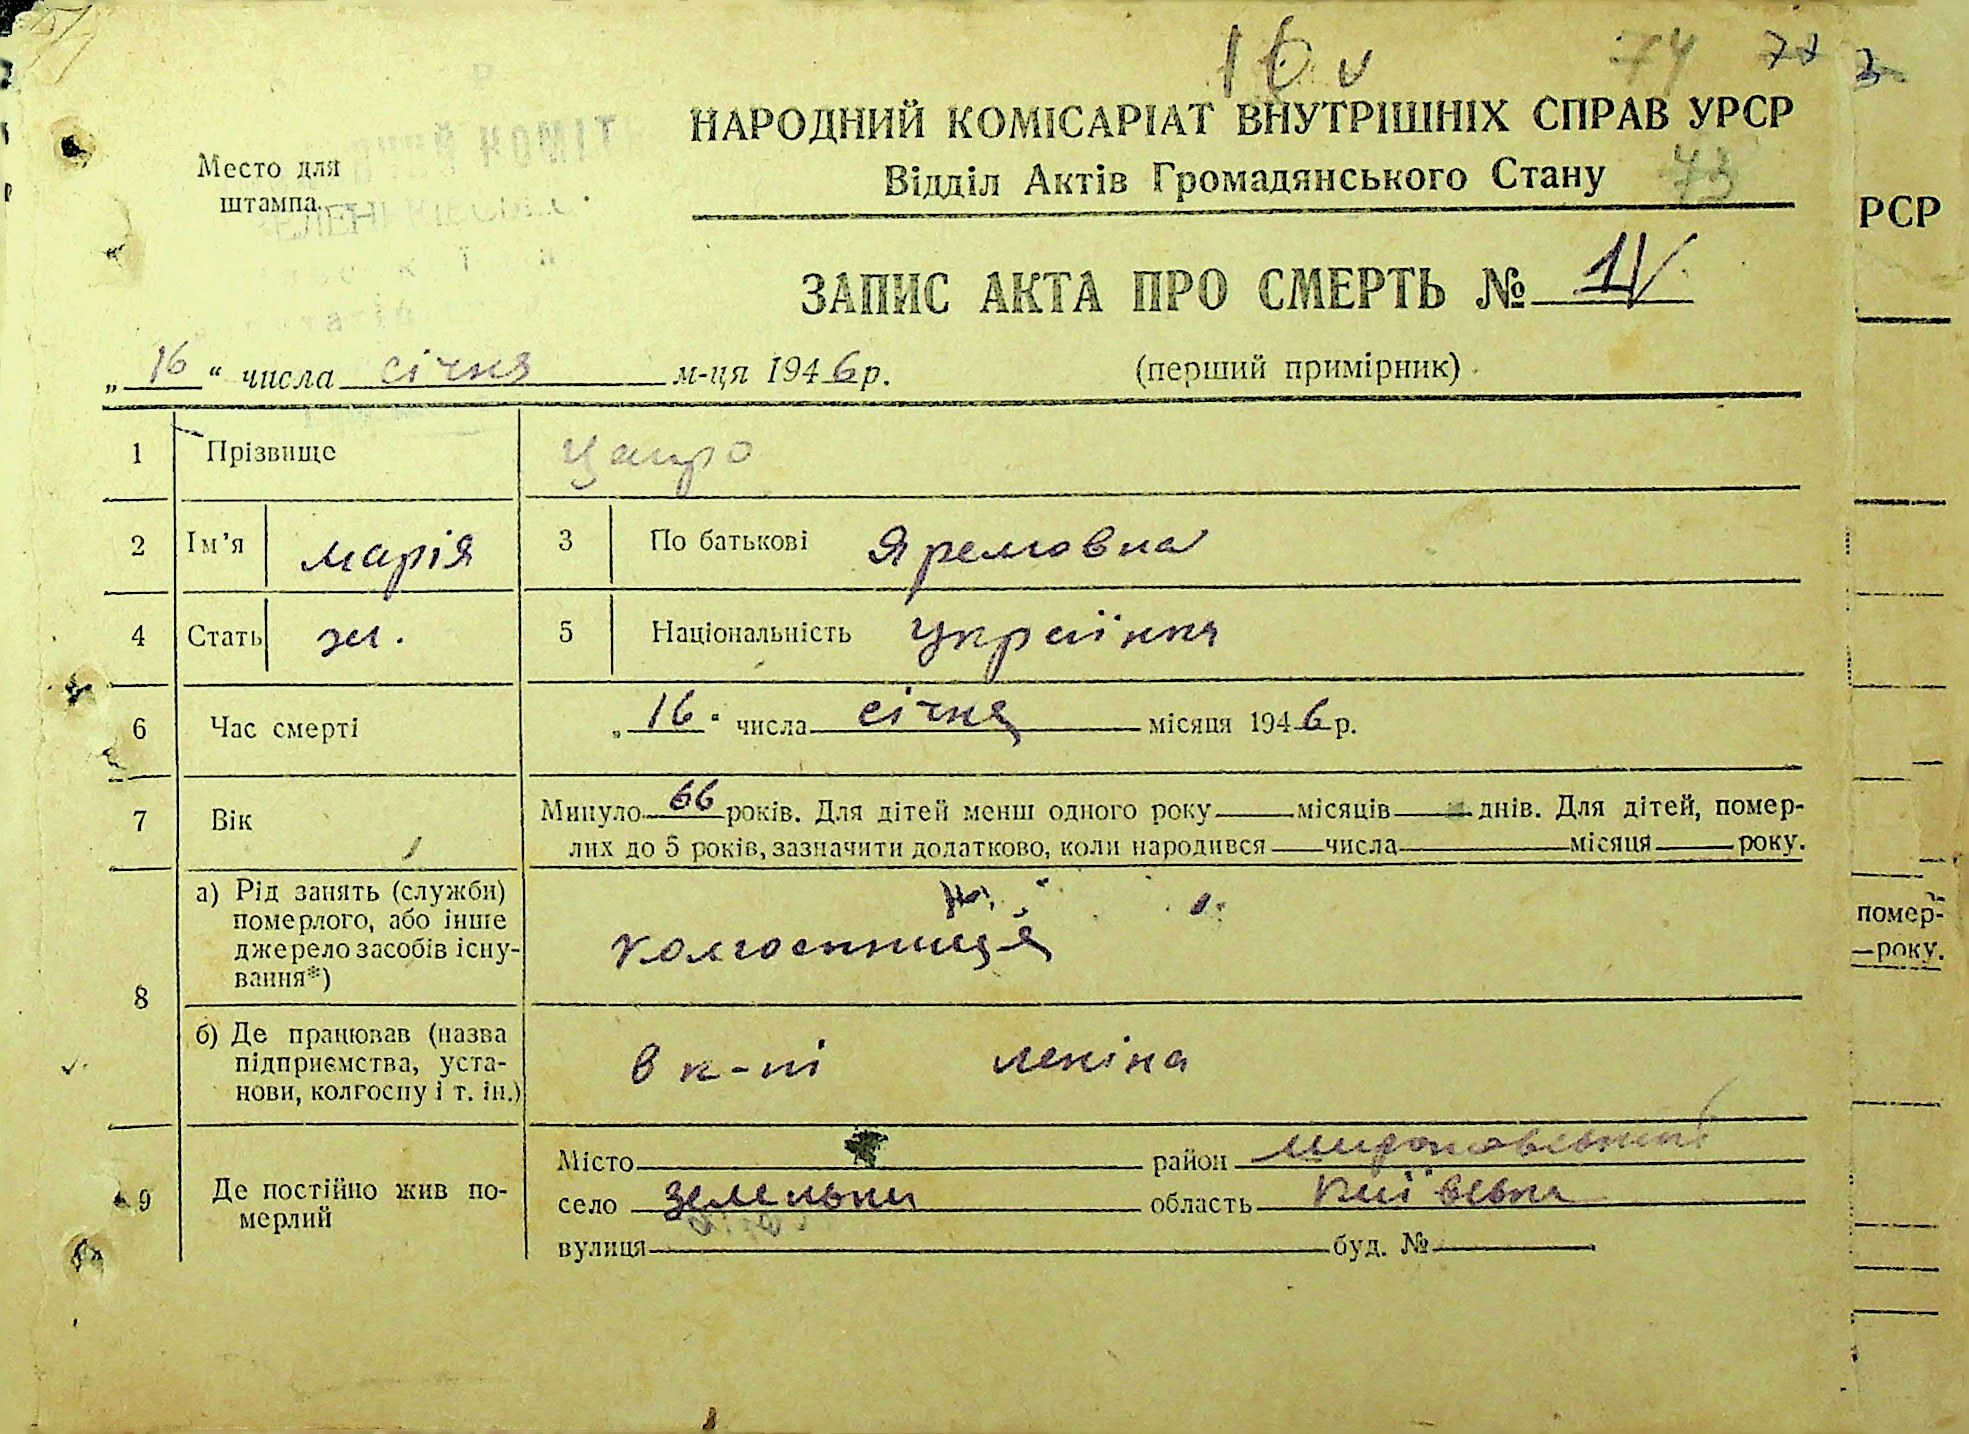 16 v 74 77
НАРОДНИЙ КОМІСАРІАТ ВНУТРІШНІХ СПРАВ УРСР
Відділ Актів Громадянського Стану 73
Место для
штампа.
КОМІТ
РСР
ЗАПИС АКТА ПРО СМЕРТЬ №
„16“ числа січня м-ця 1946 р. (перший примірник)
1 Прізвище Цапро
2 Ім’я марія 3 По батькові Яремовна
4 Стать ж. 5 Національність українка
6 Час смерті „16“ числа січня місяця 1946 р.
7 Вік Минуло 66 років. Для дітей менш одного року місяців днів. Для дітей, помер-
лих до 5 років, зазначити додатково, коли народився числа місяця року.
8 а) Рід занять (служби)
померлого, або інше
джерело засобів існу-
вання*)
колгоспниця
помер-
року.
б) Де працював (назва
підприємства, уста-
нови, колгоспу і т. ін.)
в к-пі леніна
9 Де постійно жив по-
мерлий
Місто район мироновський
село зеленьки область київська
вулиця буд. №